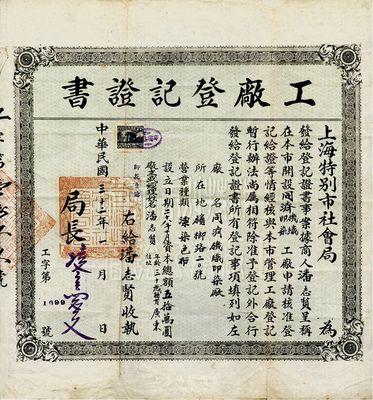 工廠登記證書
上海特別市社會局 為
發給登記證書事案據商人潘志賢呈稱
在本市開設同濟機織印染工廠申請核准登
記給證等情經核與本市管理工廠登記
暫行辦法尚屬相符除准予登記外合行
發給登記證書所有登記事項填列如左
廠名 同濟機織印染廠
所在地
營業種類 漂染色布
資本總額 五拾萬圓
潘志賢
廣東
右給潘志賢收執
中華民國三十二年一月 日
局長
工字第 號